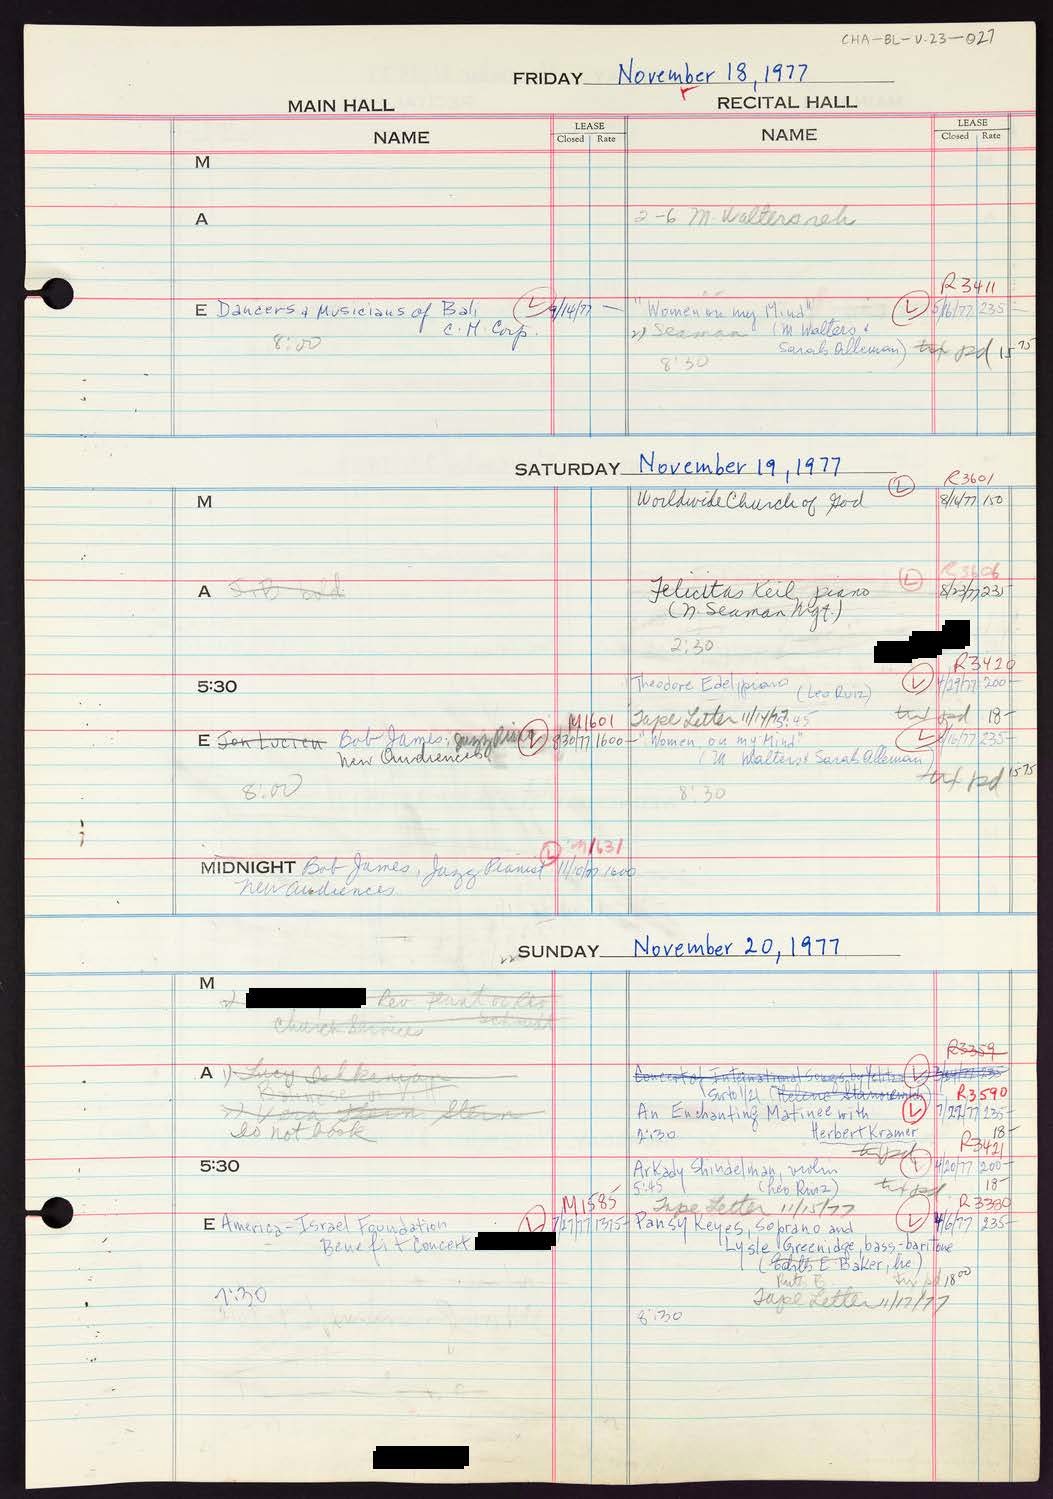 CHA-BL-V.23-027
FRIDAY November 18, 1977
MAIN HALL RECITAL HALL
NAME LEASE Closed Rate NAME LEASE Closed Rate
M
A 2-6 M. Walters reh
R3411
E Dancers & Musicians of Bali L 9/14/77 — "Women on my Mind" L 5/6/77 235—
C. M. Corp. 2) Seaman (M Walters &
8:00 Sarah Alleman) txt pd 15 75
8:30
SATURDAY November 19, 1977
R3601
M Worldwide Church of God L 8/16/77 150
R3606
A J.B. hold Felicitas Keil, piano L 8/23/77 235
(N. Seaman Mgt.)
2:30
R3420
5:30 Theodore Edel, piano (Leo Ruiz) L 4/29/77 200—
M1601 Tape Letter 11/14/77 5:45 txt pd 18—
E Jon Lucien Bob James, Jazz Pianist L 8/30/77 1600— "Women on my Mind" L 5/6/77 235—
New Audiences (M Walters & Sarah Alleman)
txt pd 15 75
8:00 8:30
M1631
MIDNIGHT Bob James, Jazz Pianist L 11/10/77 1600
New Audiences
SUNDAY November 20, 1977
M
2) Rev
Church Services Schmidt
R3359
A 1) Lucy Ishkanian Concert of International Songs by L 235
(Helene
R3590
2) Vera Stern An Enchanting Matinee with L 7/27/77 235—
Do not book 2:30 Herbert Kramer 18—
txt pd
R3421
5:30 Arkady Shindelman, violin L 4/20/77 200—
5:45 (Leo Ruiz) txt pd 18—
M1585 Tape Letter 11/15/77 R3380
E America-Israel Foundation L 7/27/77 1375— Pansy Keyes, Soprano and L 4/6/77 235—
Benefit Concert Lysle Greenidge, bass-baritone
(Edith E Baker, Inc.)
Ruth B. txt pd 18 00
7:30 Tape Letter 11/17/77
8:30